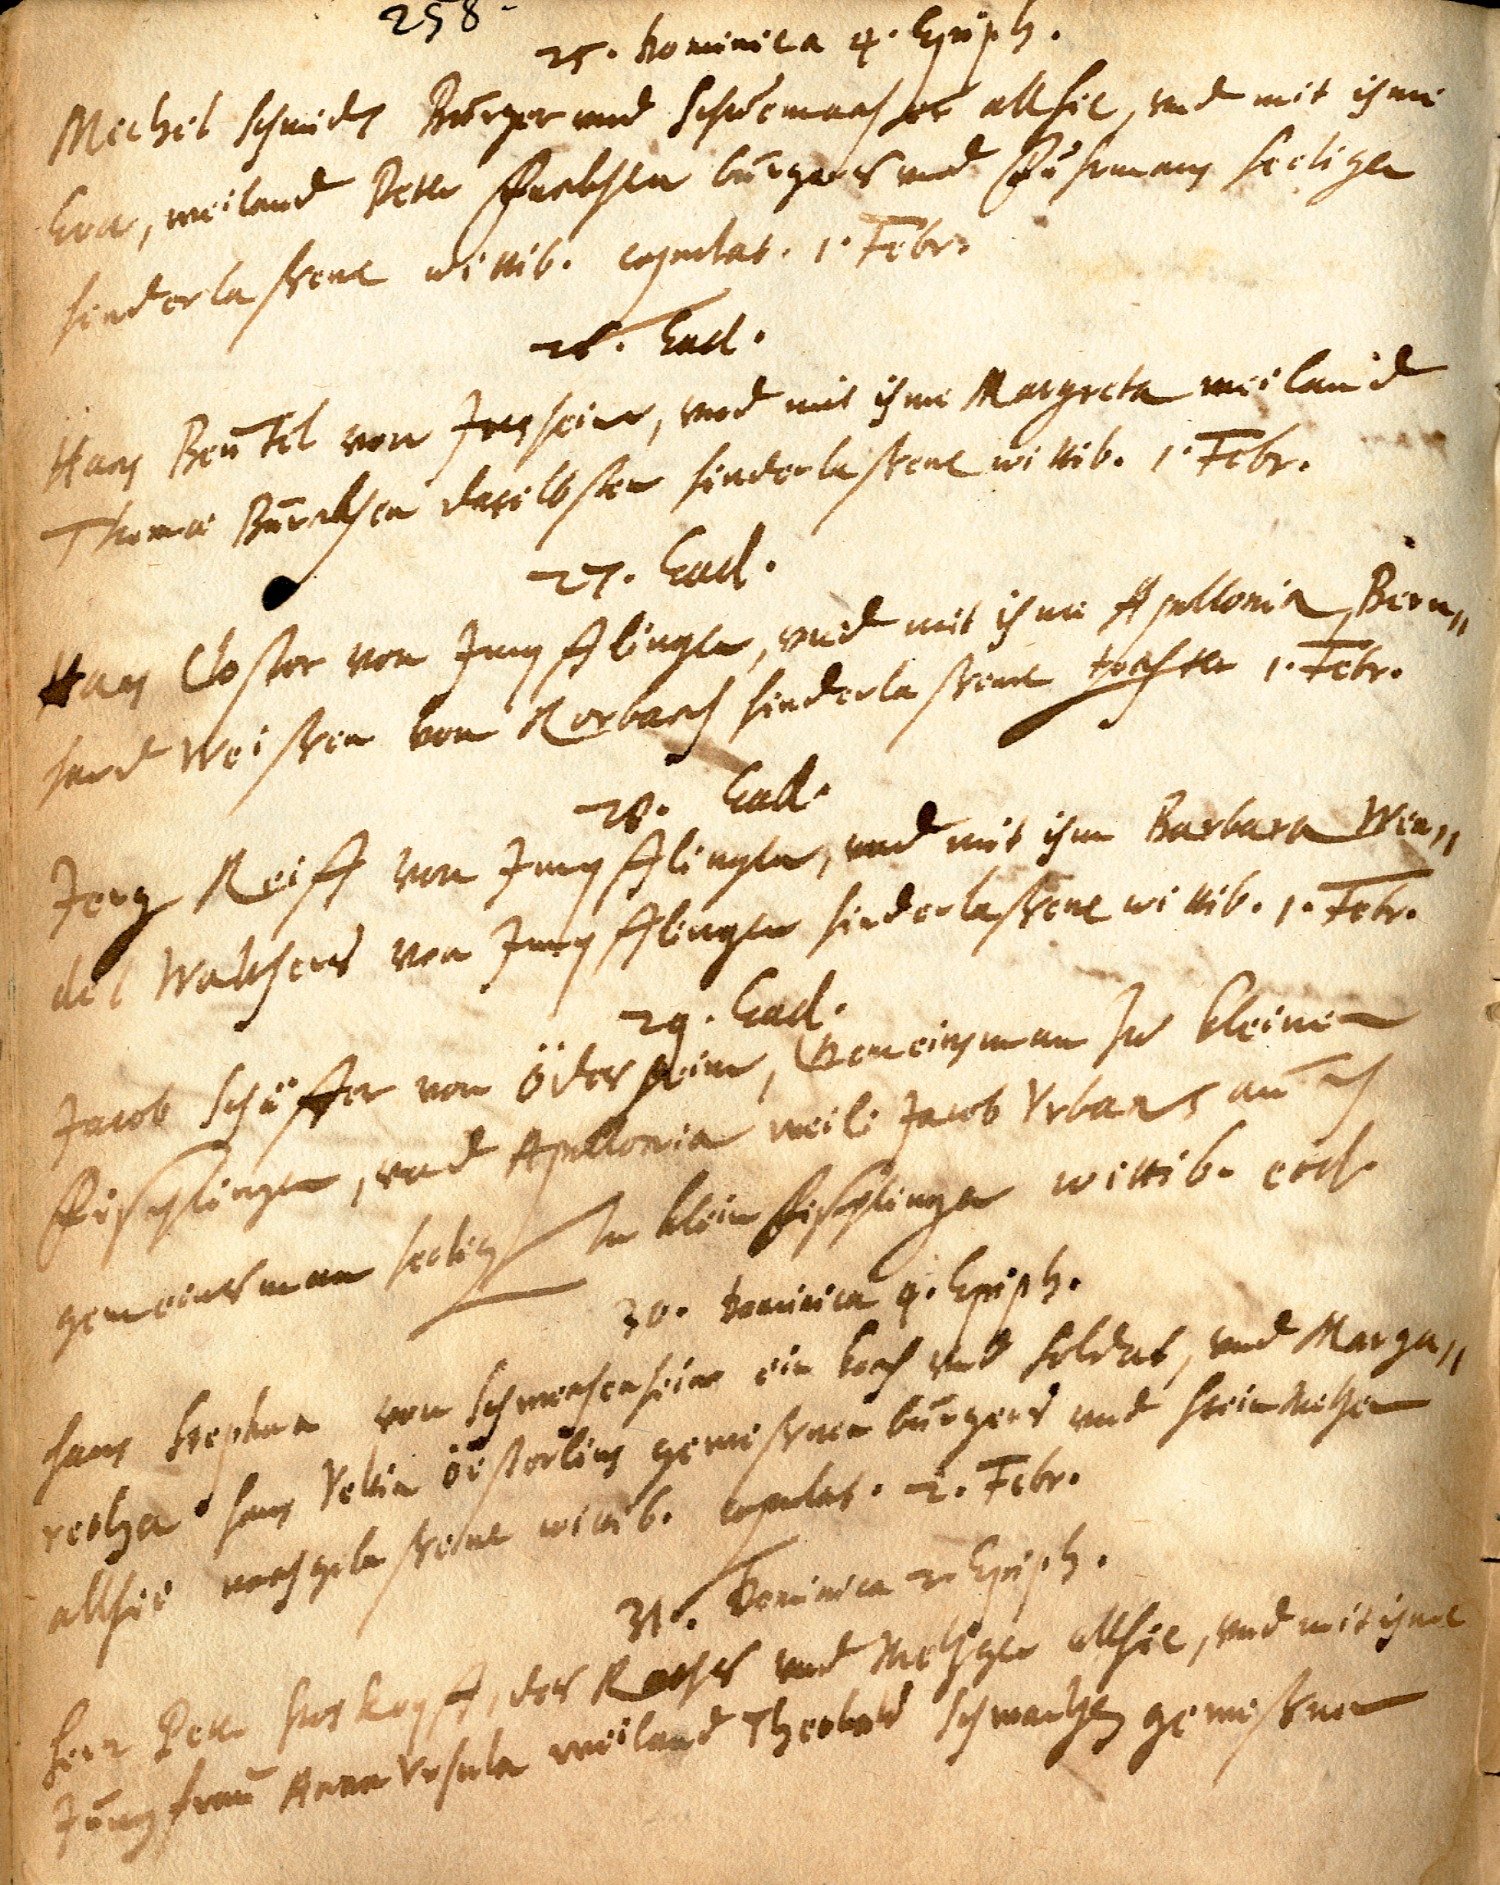 258.
25. Dominica 4. Epiph.
Michel Schmidt Burger und Schuemacher allhie, und mit ihme
Eva, weiland Peter Fuchsen burgers und Fuhrmans seeligen
hinderlaßene wittib. copulat. 1. Febr.
26. Ead.
Hans Beutel von Insheim, und mit ihme Margreta weiland
Thomæ daselbsten hinderlaßene wittib. 1. Febr.
27. Ead.
Hans Closter von Impflingen, und mit ihme Apollonia, Bern„
hard Weißen von Rorbach hinderlaßene tochter 1. Febr.
28. Ead.
Jerg Reiff von Impflingen, und mit ihm Barbara Wen„
del Walthers von Impflingen hinderlaßene wittib. 1. Febr.
29. Ead.
Jacob Schäffer von Ödesheim, Gemeinsman zu kleinen
Fischlingen, und Apollonia weil: Jacob Urbans auch
gemeinsman seelig zu klein Fischlingen wittib. eod.
30. Dominica 4. Epiph.
Hans Stephan von ein koch und soldat, und Marga„
retha Hans Veltin Öisterlins geweßnen burgers und steinmetzen
allhie nachgelaßene wittib. copulat. 2. Febr.
31. Dominica 2. Epiph.
Herr Peter des Raths und Metzger allhie, und mit ihme
Jungfrau Anna Ursula weiland Theobald Schwartzen geweßnen